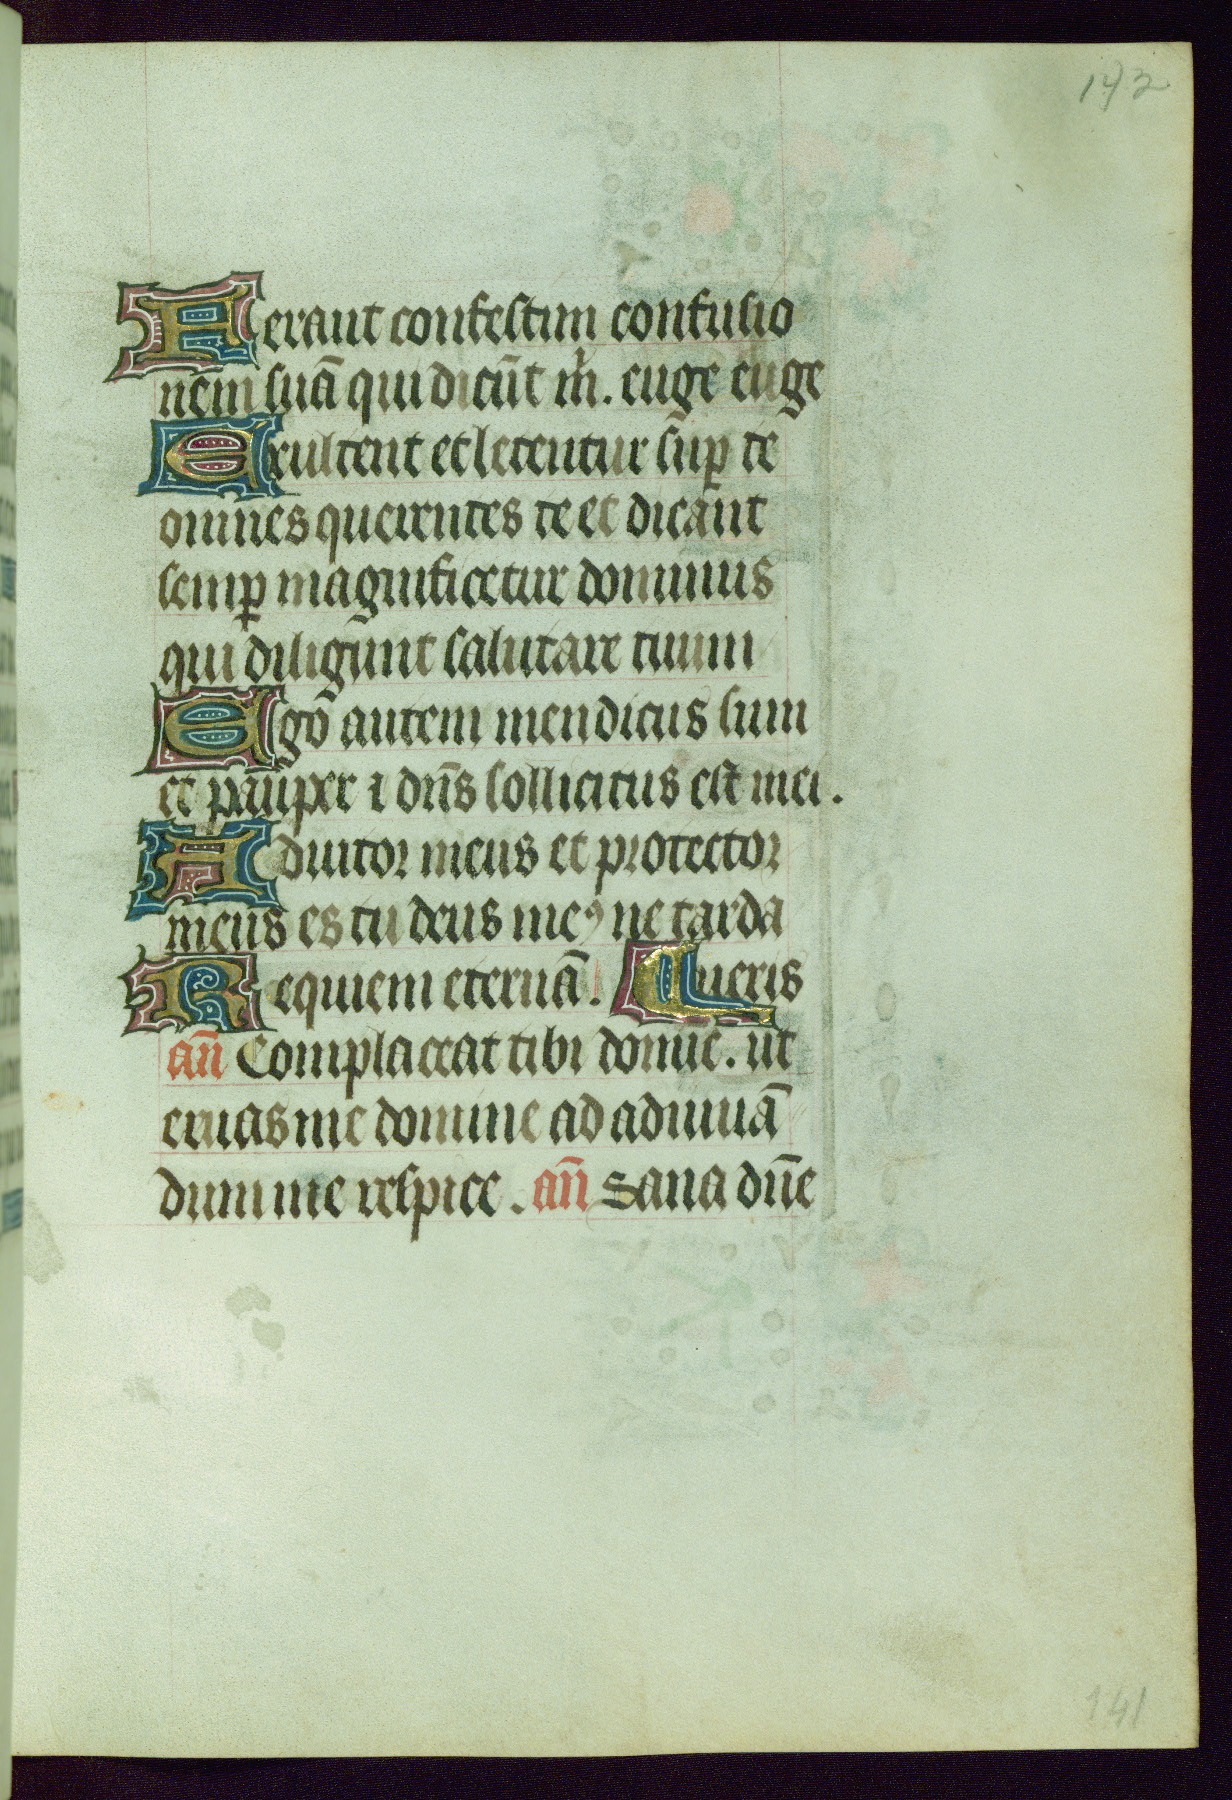 192
Ferant confestim confusio
nem suā qui dicūt m̄. euge euge
Exultent et letentur sup te
omnes querentes te et dicant
semp magnificetur dominus
qui diligunt salutare tuum
Ego autem mendicus sum
et pauper ⁊ dn̄s sollicitus est mei.
Adiutor meus et protector
meus es tu deus meꝰ ne tarda
Requiem eternā. Lueris
an̄ Complaceat tibi domie. ut
eruas me domine ad adiuuā
dum me respice. an̄ Sana dn̄e
141